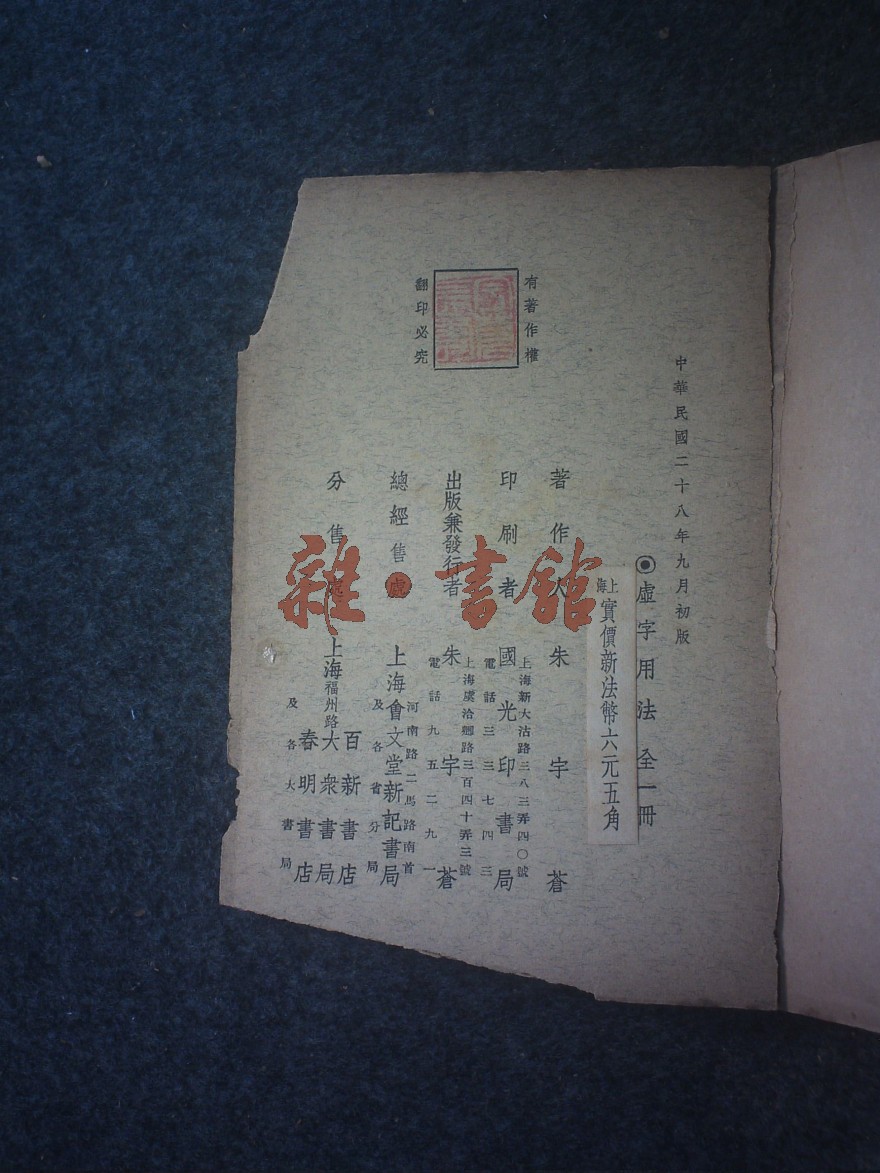 中華民國二十八年九月初版
◉虛字用法全一冊
上海實價新法幣六元五角
有著作權
翻印必究
著作人 朱宇蒼
印刷者 國光印書局
上海新大沽路三八三弄四〇號
電話三三七四三
出版兼發行者 朱宇蒼
上海虞洽卿路三百四十弄三號
電話九五二九一
總經售處 上海會文堂新記書局
河南路二馬路南首
及各省分局
分售處 上海福州路
百新書店
大衆書局
春明書店
及各大書局
雜·書館